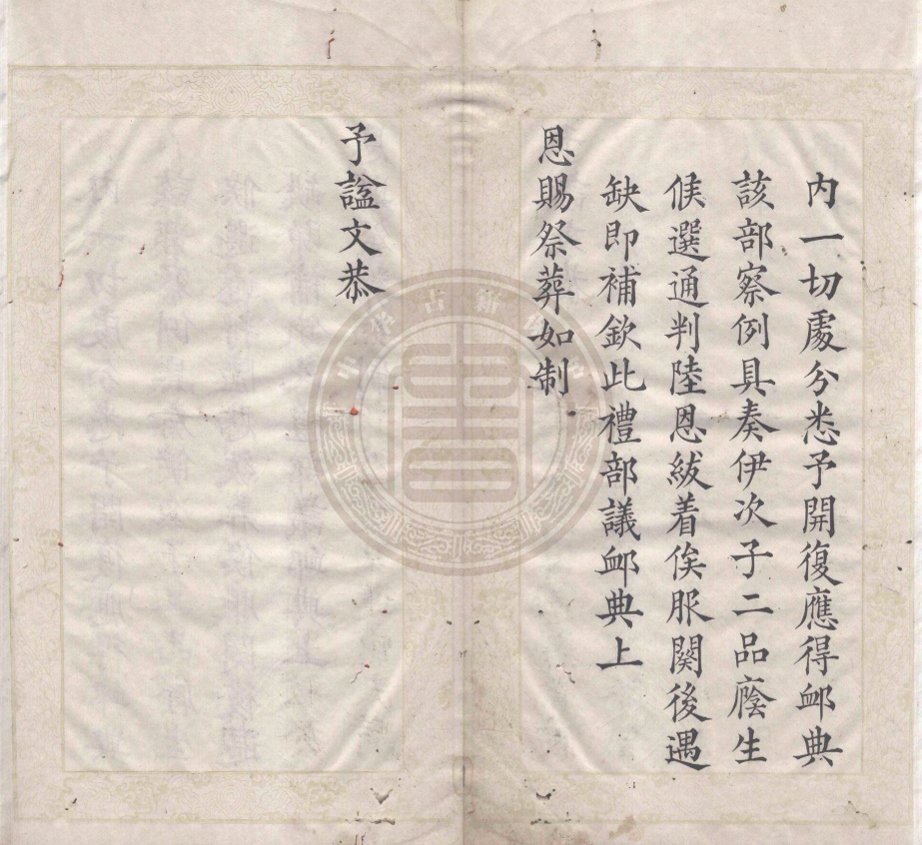 內一切處分悉予開復應得䘏典
該部察例具奏伊次子二品廕生
候選通判陸恩紱着俟服闋後遇
缺即補欽此禮部議䘏典上
恩賜祭葬如制
予諡文恭